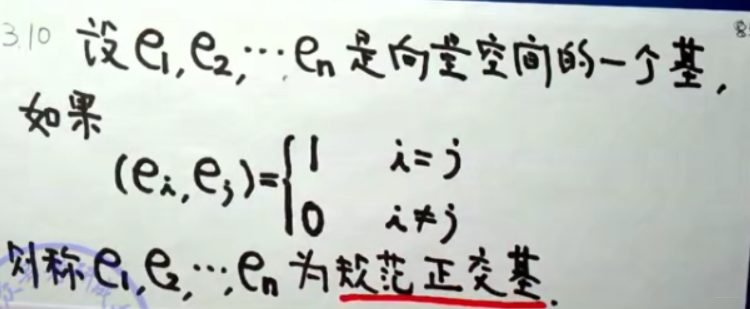 3.10 设e₁,e₂,…eₙ是向量空间的一个基,
如果
(eᵢ,eⱼ)={1 i=j
0 i≠j
则称e₁,e₂,…,eₙ为规范正交基.